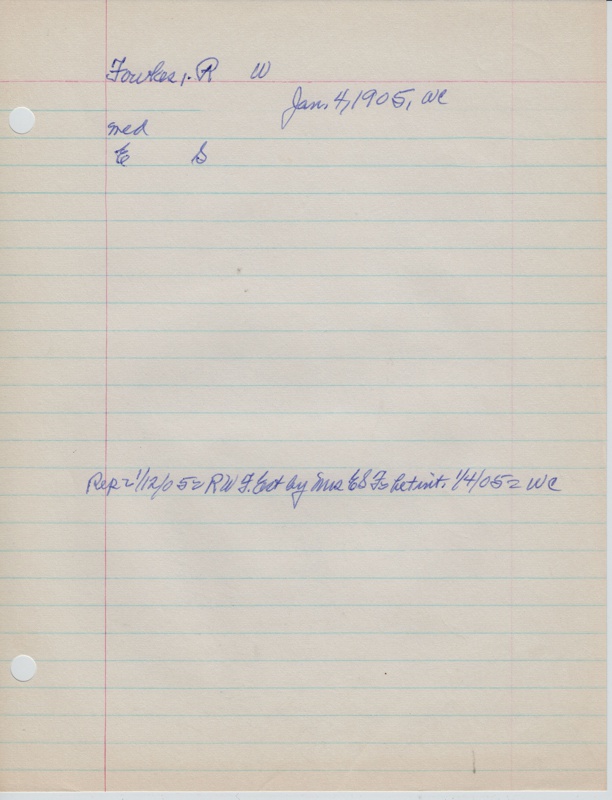 Fowkes, R W
Jan. 4, 1905, WC
med
E S
Rep = 1/12/05 = R W F. Est by Mrs ES F = het int. 1/4/05 = WC